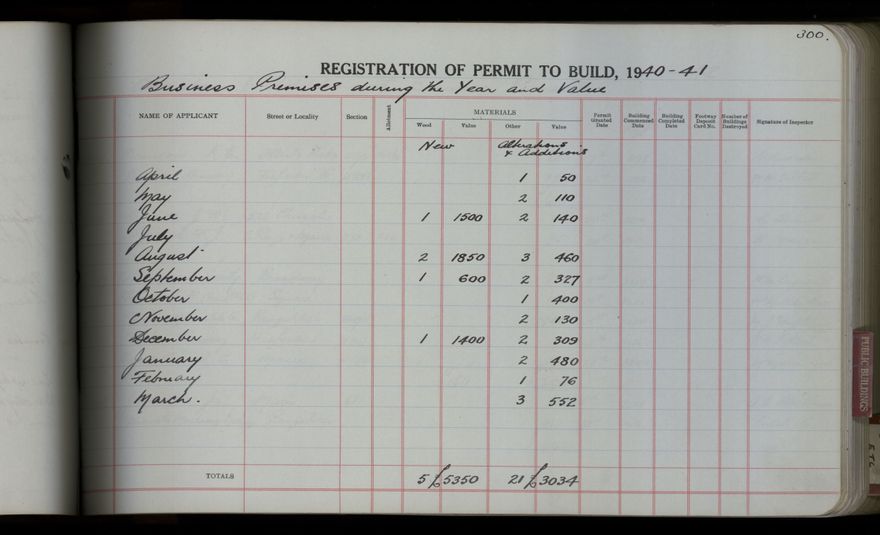 300.
REGISTRATION OF PERMIT TO BUILD, 1940-41
Business Premises during the Year and Value
NAME OF APPLICANT Street or Locality Section Allotment MATERIALS Permit Granted Date Building Commenced Date Building Completed Date Footway Deposit Card No. Number of Buildings Destroyed Signature of Inspector
Wood Value Other Value
New Alterations
& Additions
April 1 50
May 2 110
June 1 1500 2 140
July
August 2 1850 3 460
September 1 600 2 327
October 1 400
November 2 130
December 1 1400 2 309
January 2 480
February 1 76
March. 3 552
TOTALS 5 £5350 21 £3034
PUBLIC BUILDINGS